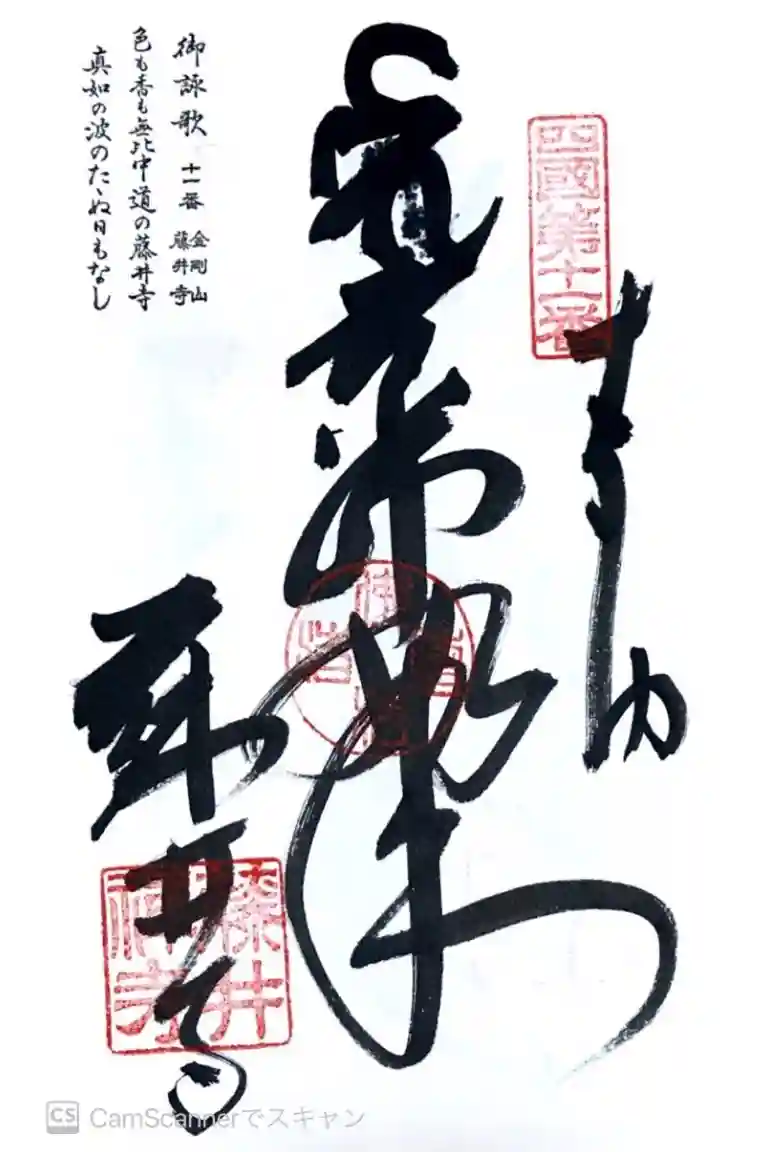 四國第十一番
奉納
薬師如来
藤井寺
藤井禅寺
御詠歌 十一番 金剛山 藤井寺
色も香も無比中道の藤井寺
真如の波のたゝぬ日もなし
CS CamScannerでスキャン